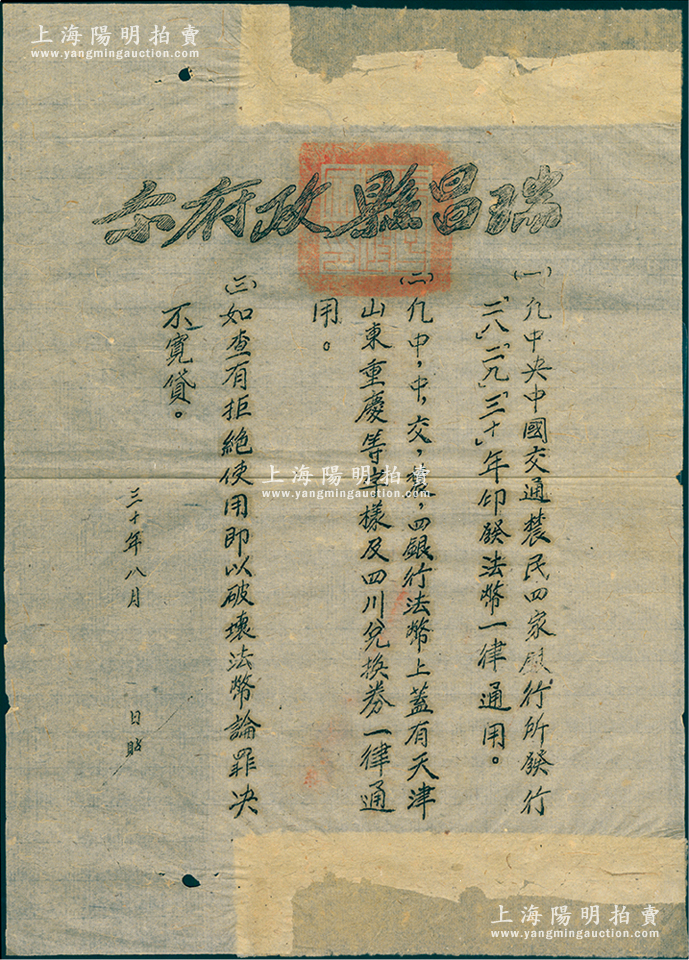 上海陽明拍賣
www.yangmingauction.com
瑞昌縣政府示
(一)凡中央中國交通農民四家銀行所發行
「二八」「二九」「三十」年印發法幣一律通用。
(二)凡中,中,交,農,四銀行法幣上蓋有天津
山東重慶等字樣及四川兌換券一律通
用。
(三)如查有拒絕使用即以破壞法幣論罪决
不寬貸。
三十年八月 日
上海陽明拍賣
www.yangmingauction.com
上海陽明拍賣
www.yangmingauction.com